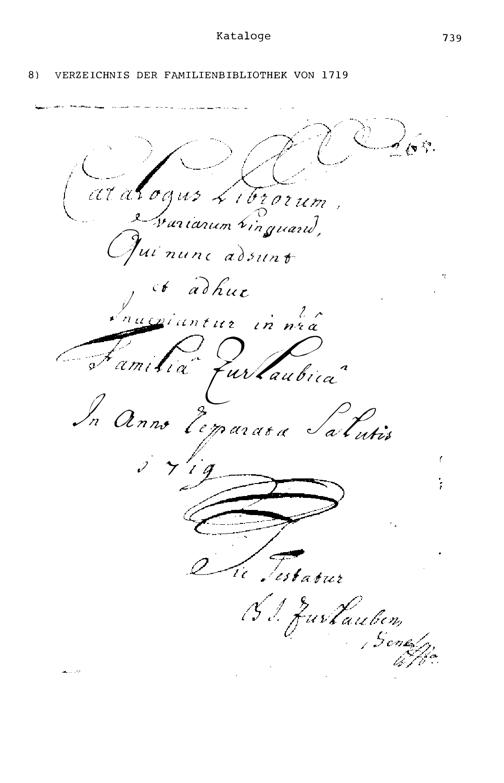 Kataloge
739
8) VERZEICHNIS DER FAMILIENBIBLIOTHEK VON 1719
Catalogus Librorum,
variarum Linguarũ,
Qui nunc adsunt
et adhuc
Inveniantur in nr̃ã
Familiâ Zurlaubicâ
In Anno Reparata Salutis
1719
Sic Testatur
Zurlauben